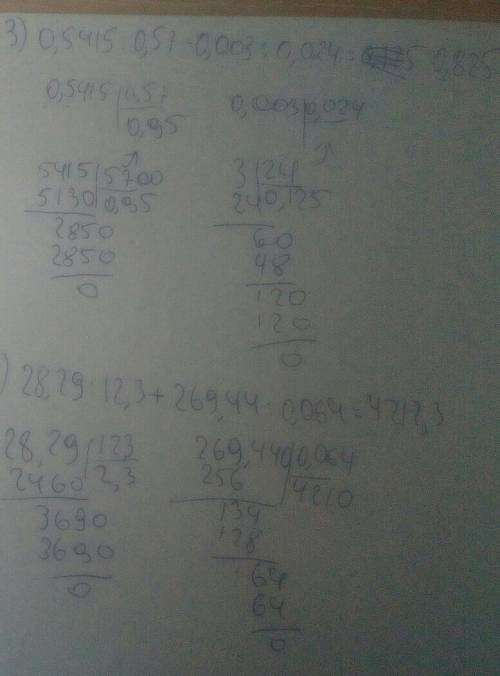 3) 0,5415 : 0,57 - 0,003 : 0,024 = 0,825
0,5415 0,57
0,95
0,003 0,024
5415 5700
5130 0,95
2850
2850
0
3 24
24 0,125
60
48
120
120
0
) 28,29 : 12,3 + 269,44 : 0,064 = 4212,3
28,29 123
2460 2,3
3690
3690
0
269,440 0,064
256 4210
134
128
64
64
0